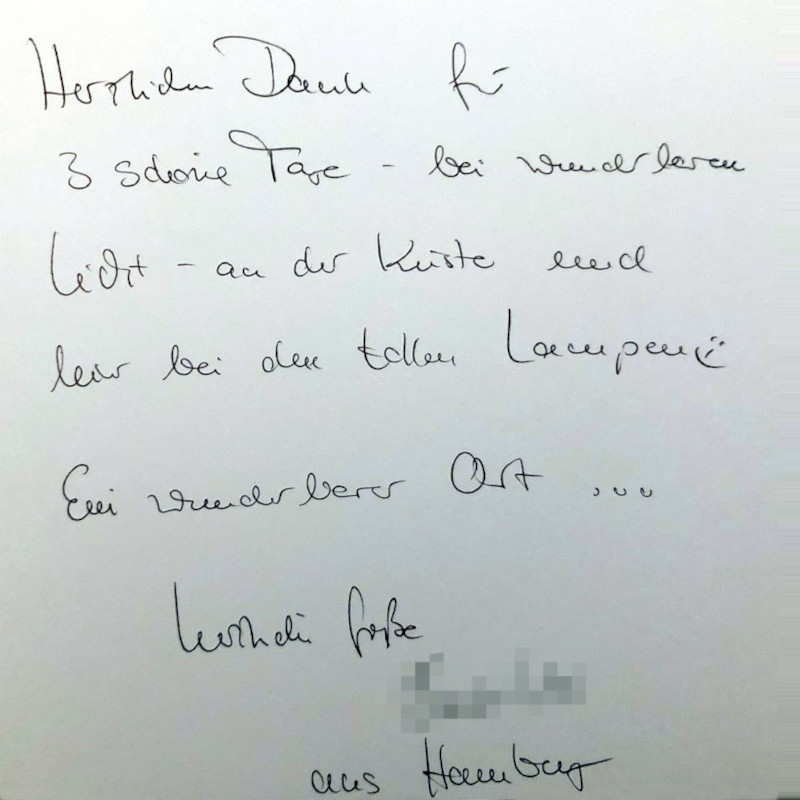 Herzlichen Dank für
3 schöne Tage - bei wunderbarem
Licht - an der Küste und
hier bei den tollen Lampen :)
Ein wunderbarer Ort ...
herzliche Grüße
aus Hamburg